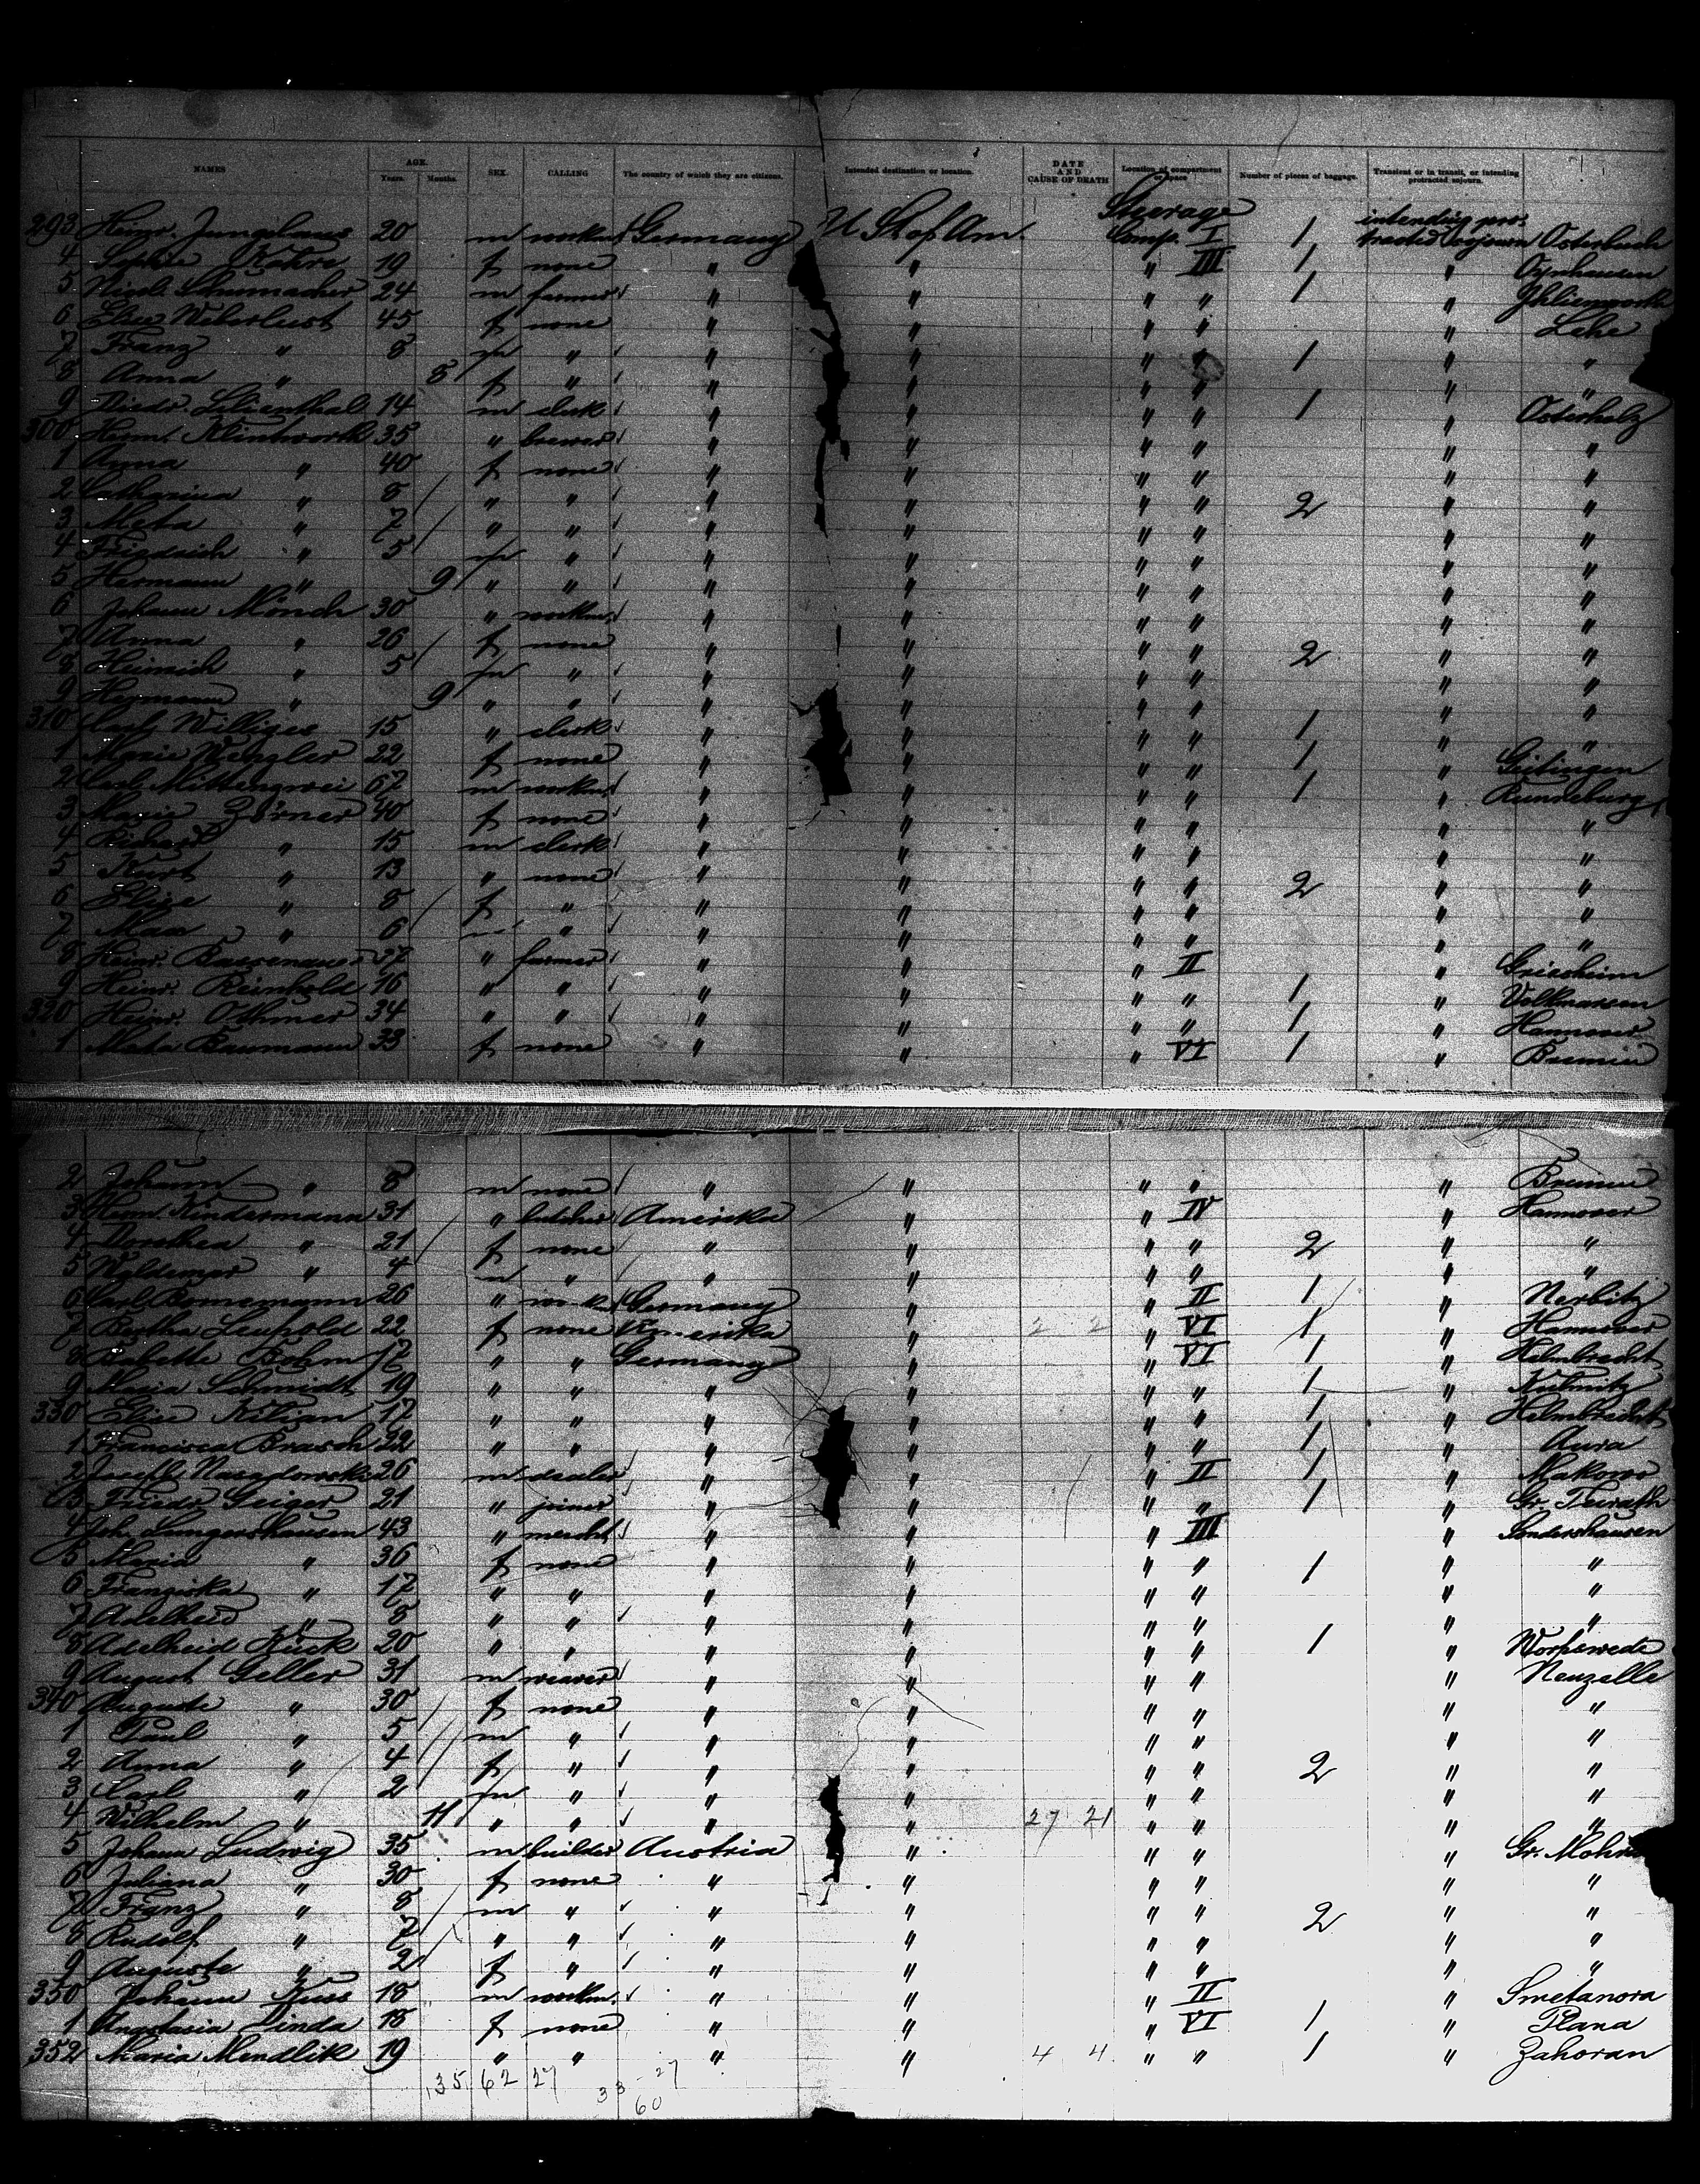 NAMES AGE. Years. Months. SEX. CALLING The country of which they are citizens. Intended destination or location. DATE AND CAUSE OF DEATH Location of compartment or space Number of pieces of baggage. Transient or in transit, or intending protracted sojourn.
Steerage intending pro-
293 Heinr. 20 m Germany U St of Am. Comp. I 1 tracted sojourn
4 Sophie 19 f none " " " III 1 " Oynhausen
5 Nicol. Schumacher 24 m farmer " " " " 1 "
6 45 f none " " " " " Lehe
7 Franz " 8 m " " " " " 1 " "
8 Anna " 8 f " " " " " " "
9 Diedr. Lilienthal 14 m clerk " " " " 1 " Osterholz
300 Herm. Klintworth 35 " brewer " " " " " "
1 Anna " 40 f none " " " " " "
2 Catharina " 8 " " " " " " 2 " "
3 Meta " 7 " " " " " " " "
4 Friedrich " 5 m " " " " " " "
5 Hermann " 9 " " " " " " " "
6 Johann Mönch 30 " workm. " " " " " "
7 Anna " 26 f none " " " " 2 " "
8 Heinrich " 5 m " " " " " " "
9 Hermann " 9 " " " " " " " "
310 Carl Williges 15 " clerk " " " " 1 " "
1 Marie Wengler 22 f none " " " " 1 "
2 Carl Mittenzwei 67 m workm. " " " " 1 "
3 Marie Zörner 40 f none " " " " " "
4 Richard " 15 m clerk " " " " " "
5 Kurt " 13 " none " " " " 2 " "
6 Elise " 8 f " " " " " " "
7 Max " 6 m " " " " " " "
8 Heinr. 37 " farmer " " " II " Griesheim
9 Heinr. Reinhold 16 " " " " " " 1 " Volkmarsen
320 Heinr. Othmer 34 " " " " " " 1 " Hannover
1 Baumann 33 f none " " " VI 1 " Bremen
2 Johann " 8 m none " " " " " Bremen
3 Herm. Kindermann 31 " butcher Amerika " " IV " Hannover
4 Dorothea " 21 f none " " " " 2 " "
5 Woldemar " 4 m " " " " " " "
6 Carl Bornemann 26 " Germany " " II 1 " Nerbitz
7 Bertha Leupold 22 f none Amerika " 2 2 " VI 1 " Hannover
8 Babette Böhm 17 " " Germany " " VI 1 " Helmbrecht
9 Maria Schmidt 19 " " " " " " 1 "
330 Elise Kilian 17 " " " " " " 1 " Helmbrecht
1 Francisca Brasch 22 " " " " " " 1 " Aura
2 26 m dealer " " " II 1 " Makowo
3 Friedr. Geiger 21 " joiner " " " " 1 " Gr.
4 Joh. Lungershausen 43 " mercht. " " " III " Sondershausen
5 Maria " 36 f none " " " " 1 " "
6 Franziska " 17 " " " " " " " "
7 Adelheid " 8 " " " " " " " "
8 Adelheid Kück 20 " " " " " " 1 " Worpswede
9 August Geller 31 m weaver " " " " " Neuzelle
340 Auguste " 30 f none " " " " " "
1 Paul " 5 m " " " " " " "
2 Anna " 4 f " " " " " 2 " "
3 Carl " 2 m " " " " " " "
4 Wilhelm " 11 " " " " 27 21 " " " "
5 Johann Ludwig 35 m builder Austria " " " " Gr.
6 Juliana " 30 f none " " " " " "
7 Franz " 8 m " " " " " 2 " "
8 Rudolf " 7 " " " " " " " "
9 Auguste " 2 f " " " " " " "
350 Johann 18 m workm. " " " II " Smetanora
1 Anastasia Linda 18 f none " " " VI 1 " Plana
352 Maria Mendlik 19 " " " " 4 4 " " 1 " Zahoran
35 62 27 33 - 27
60